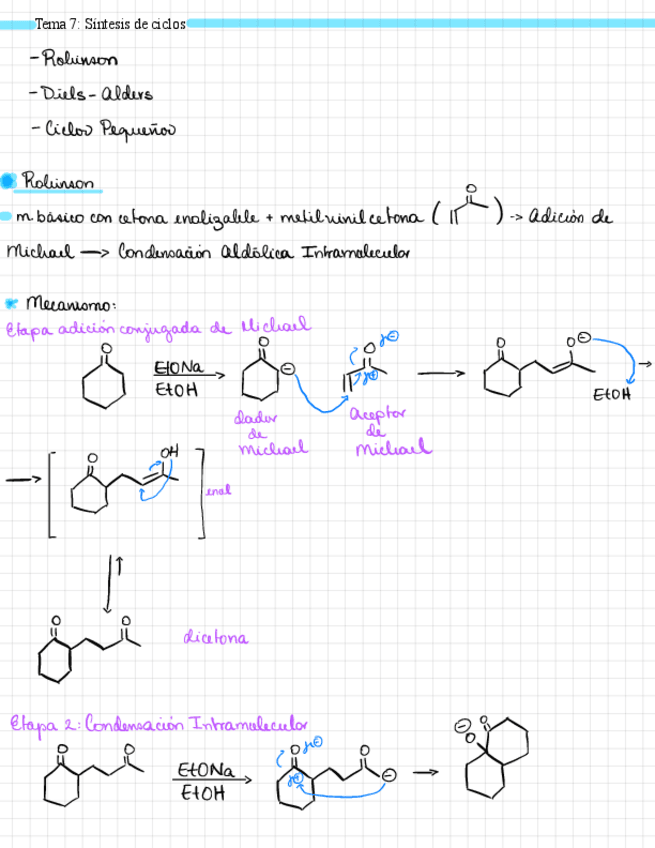 Tema 7: Síntesis de ciclos
- Robinson
- Diels-Alders
- Ciclos Pequeños
Robinson
m. básico con cetona enolizable + metilvinilcetona ( O ) -> Adición de
Michael -> Condensación Aldólica Intramolecular
* Mecanismo:
Etapa adición conjugada de Michael
O EtONa EtOH O ⊖ O δ⊖ δ⊕ O O⊖ EtOH
dador de Michael
Aceptor de Michael
O OH enol
O O dicetona
Etapa 2: Condensación Intramolecular
O O EtONa EtOH O δ⊖ δ⊕ O ⊖ ⊖ O O